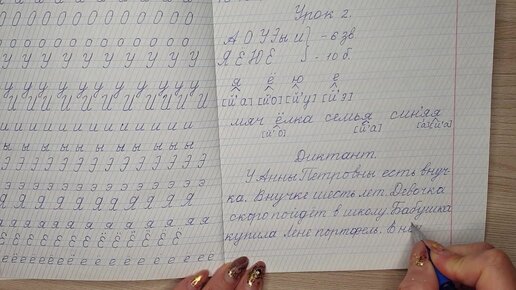 О О О О О О О О О О О
о о о о о о о о о о о о
У У У У У У У У У У У
у у у у у у у у у у
И И И И И И И И И И
и и и и и и и и и и и и
ы ы ы ы ы ы ы ы ы ы ы
Э Э Э Э Э Э Э Э Э Э Э
э э э э э э э э э э э э
Я Я Я Я Я Я Я Я Я Я
я я я я я я я я я я я
Ё Ё Ё Ё Ё Ё Ё Ё Ё Ё
ё ё ё ё ё ё ё ё ё ё ё ё
Урок 2.
А О У Э ы и } - 6 зв
Я Ё Ю Е } - 10 б.
я ё ю е
[й'а] [й'о] [й'у] [й'э]
мяч ёлка семья синяя
[й'о] [й'а] [а] [й'а]
Диктант
У Анны Петровны есть внуч-
ка. Внучке шесть лет. Девочка
скоро пойдёт в школу. Бабушка
купила Лене портфель. В нём